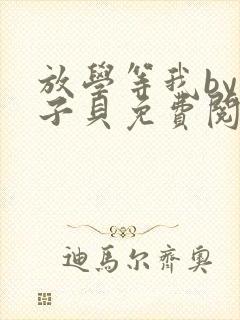 放學等我by
子貝免費閱
迪馬尔齊奥